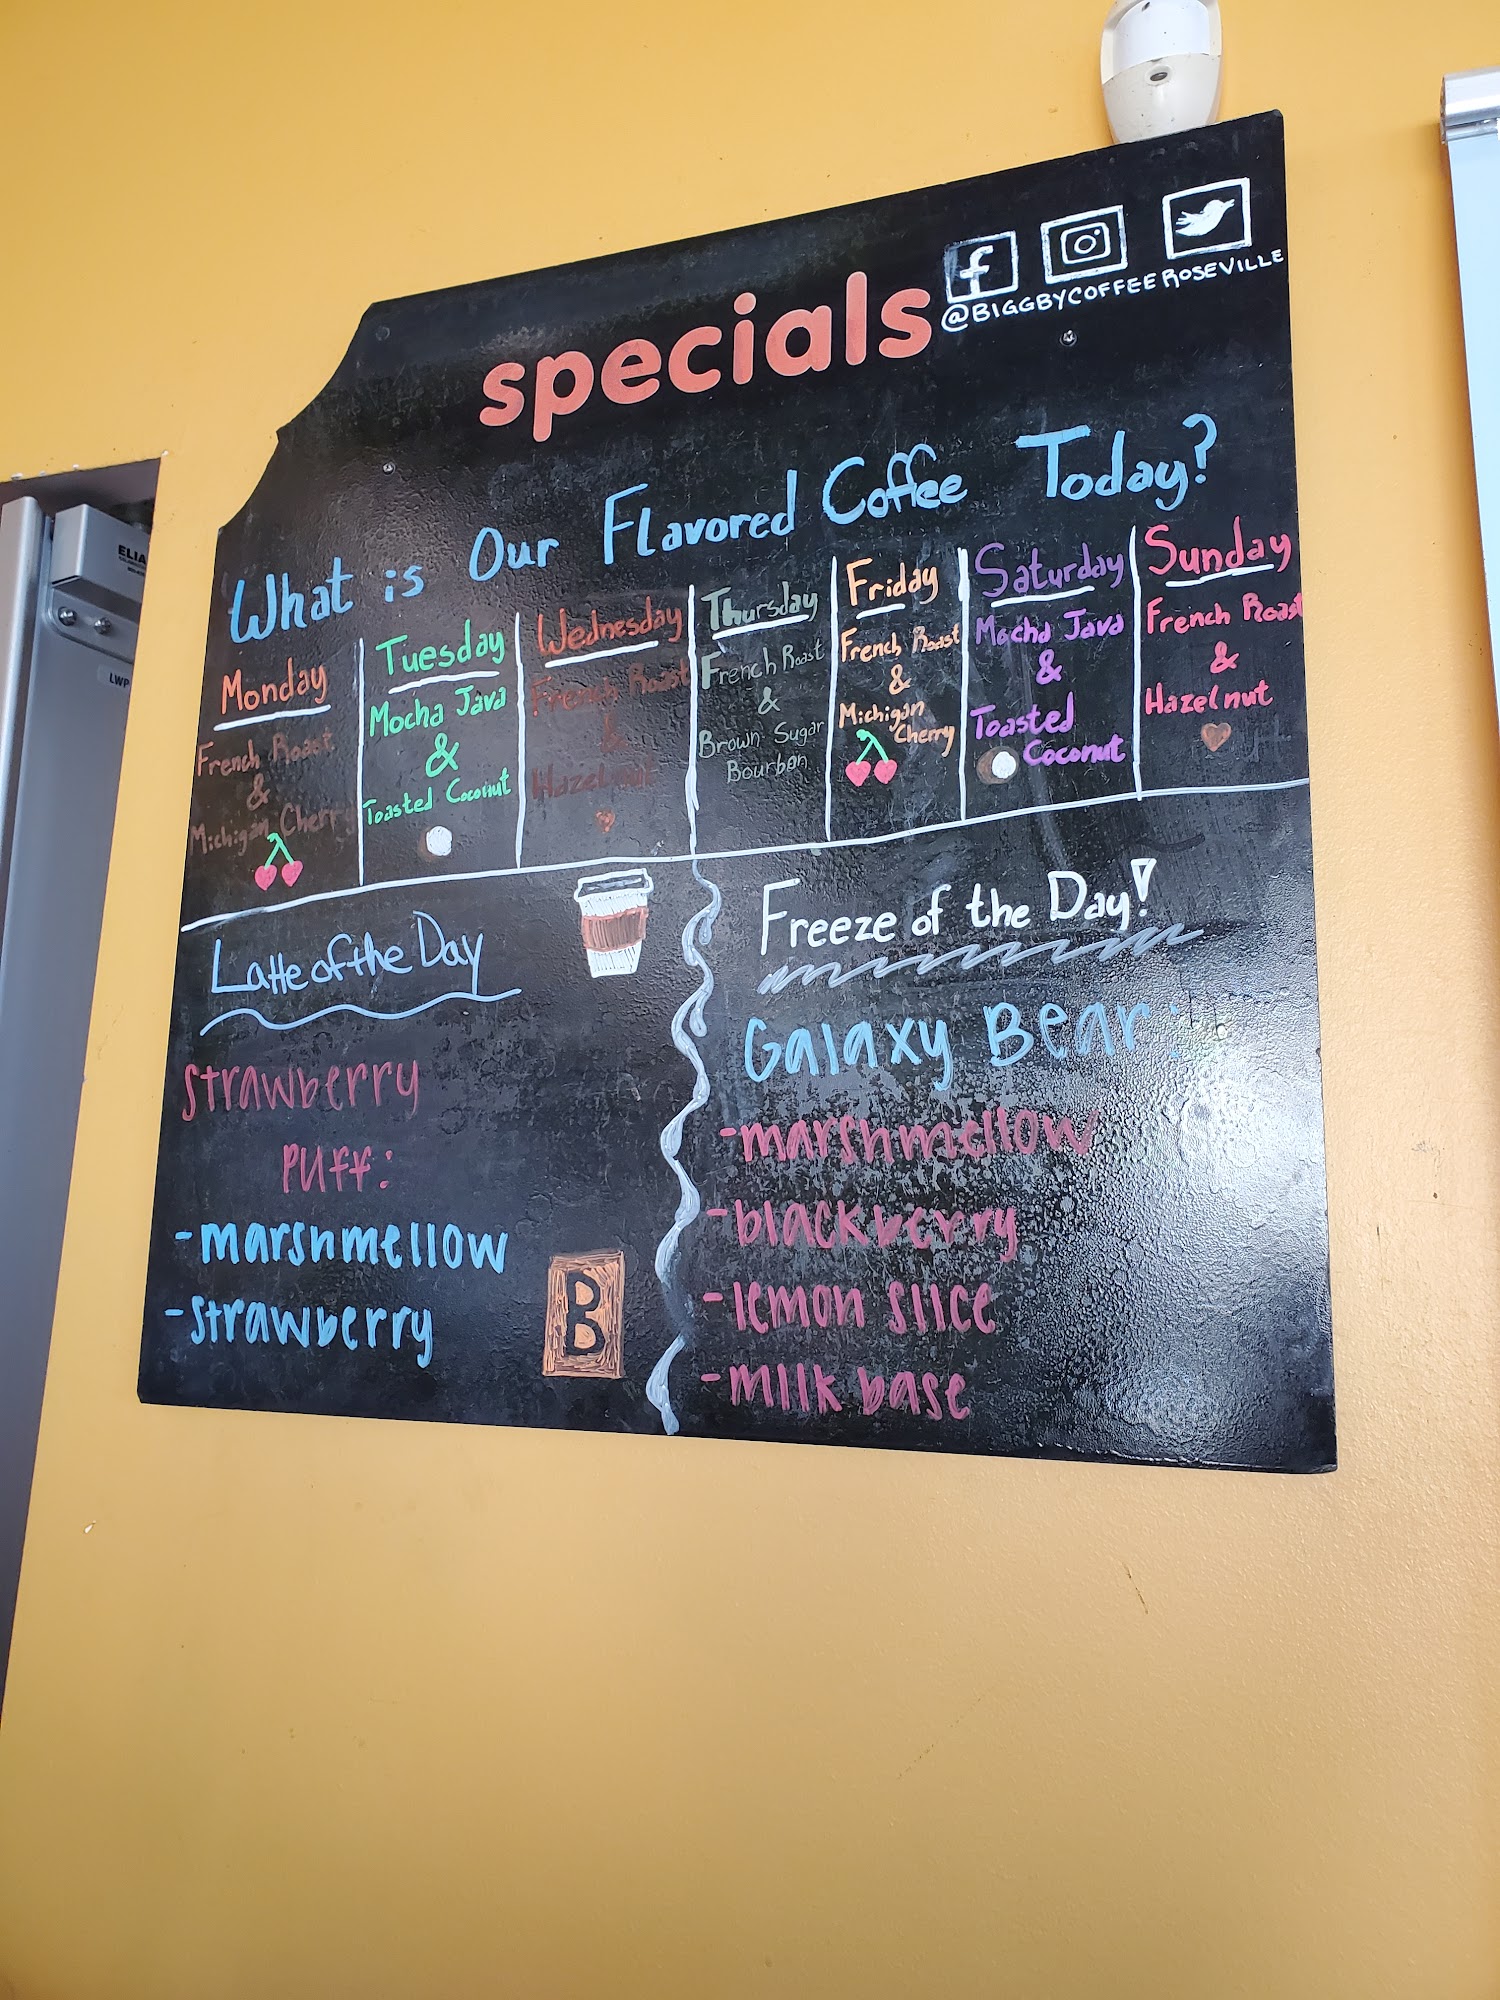 specials
@BIGGBYCOFFEEROSEVILLE
What is Our Flavored Coffee Today?
Monday
French Roast
&
Michigan Cherry
Tuesday
Mocha Java
&
Toasted Coconut
Wednesday
French Roast
&
Hazelnut
Thursday
French Roast
&
Brown Sugar
Bourbon
Friday
French Roast
&
Michigan
Cherry
Saturday
Mocha Java
&
Toasted
Coconut
Sunday
French Roast
&
Hazelnut
Latte of the Day
Strawberry
Puff:
-marshmellow
-strawberry
B
Freeze of the Day!
Galaxy Bear:
-marshmellow
-blackberry
-lemon slice
-milk base
LWP